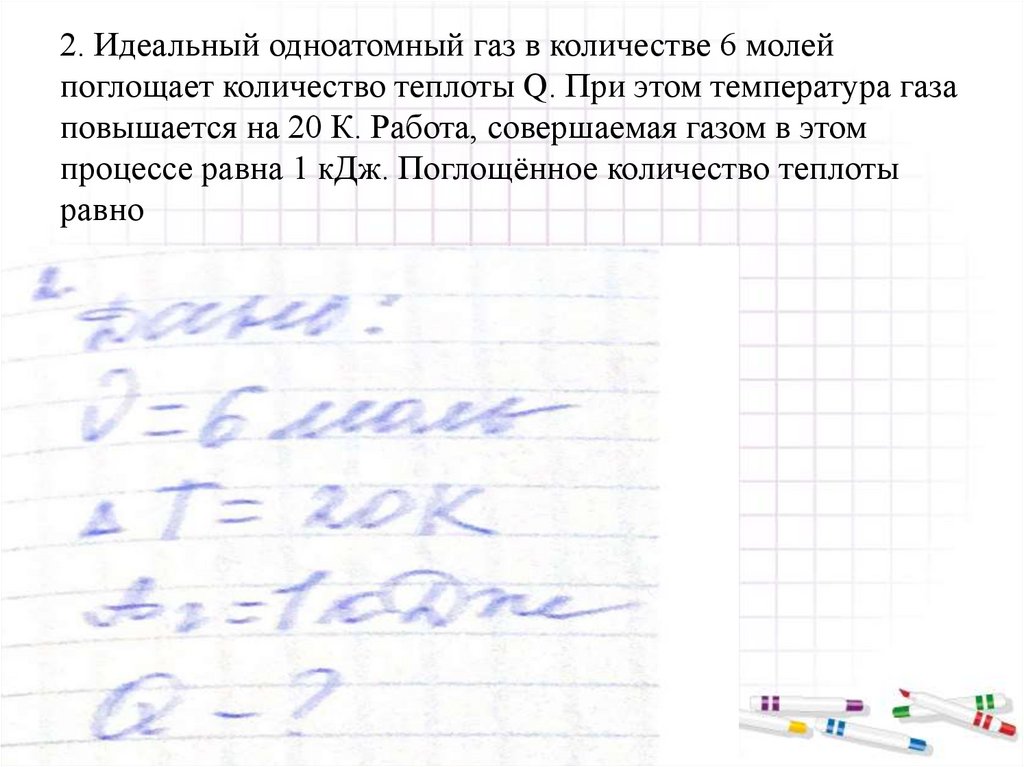 2. Идеальный одноатомный газ в количестве 6 молей
поглощает количество теплоты Q. При этом температура газа
повышается на 20 К. Работа, совершаемая газом в этом
процессе равна 1 кДж. Поглощённое количество теплоты
равно
2.
Дано:
ν = 6 моль
Δ T = 20К
Aг = 1 кДж
Q - ?